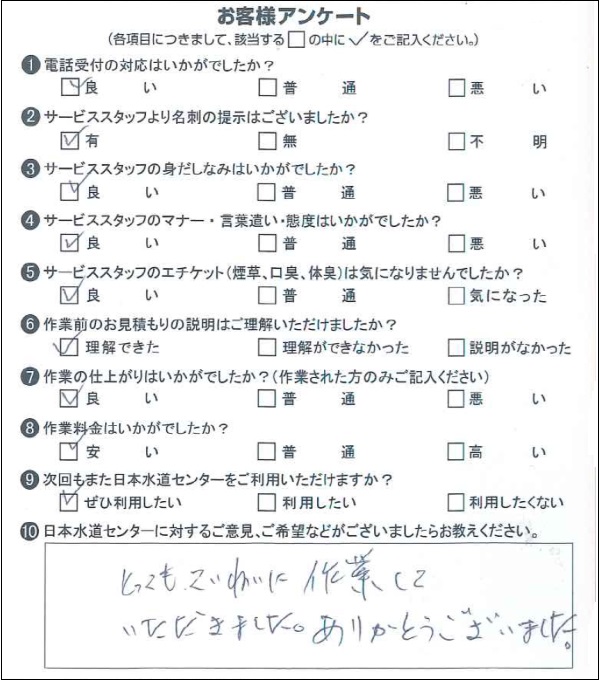 お客様アンケート
(各項目につきまして、該当する□の中に✓をご記入ください。)
❶電話受付の対応はいかがでしたか?
☑良い □普通 □悪い
❷サービススタッフより名刺の提示はございましたか?
☑有 □無 □不明
❸サービススタッフの身だしなみはいかがでしたか?
☑良い □普通 □悪い
❹サービススタッフのマナー・言葉遣い・態度はいかがでしたか?
☑良い □普通 □悪い
❺サービススタッフのエチケット(煙草、口臭、体臭)は気になりませんでしたか?
☑良い □普通 □気になった
❻作業前のお見積もりの説明はご理解いただけましたか?
☑理解できた □理解ができなかった □説明がなかった
❼作業の仕上がりはいかがでしたか?(作業された方のみご記入ください)
☑良い □普通 □悪い
❽作業料金はいかがでしたか?
☑安い □普通 □高い
❾次回もまた日本水道センターをご利用いただけますか?
☑ぜひ利用したい □利用したい □利用したくない
❿日本水道センターに対するご意見、ご希望などがございましたらお教えください。
とってもていねいに作業して
いただきました。ありがとうございました。